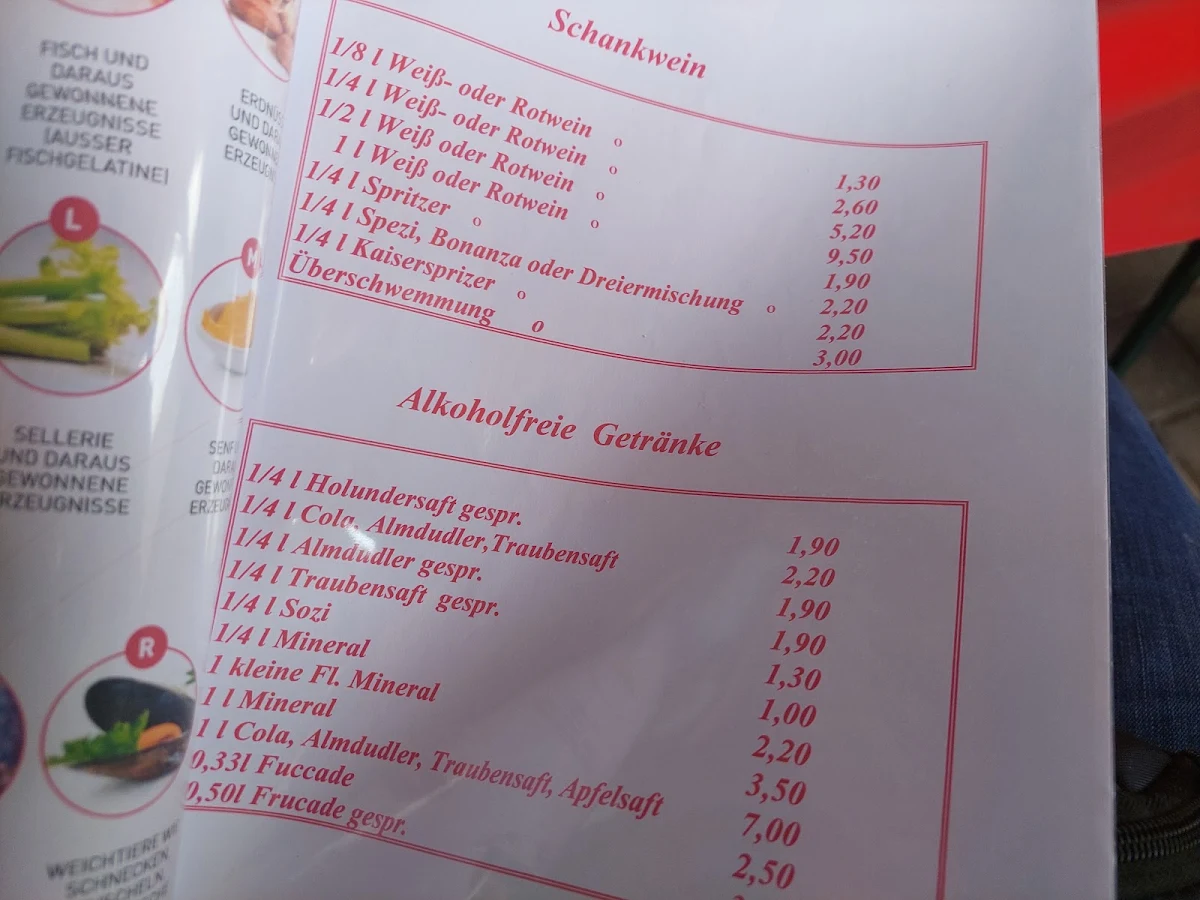 FISCH UND
DARAUS
GEWONNENE
ERZEUGNISSE
(AUSSER
FISCHGELATINE)
L
SELLERIE
UND DARAUS
GEWONNENE
ERZEUGNISSE
R
WEICHTIERE WI
SCHNECKEN
ERDNÜS
UND DAR
GEWON
ERZEUGN
M
SENF
DARA
GEWON
ERZEU
Schankwein
1/8 l Weiß- oder Rotwein o 1,30
1/4 l Weiß- oder Rotwein o 2,60
1/2 l Weiß oder Rotwein o 5,20
1 l Weiß oder Rotwein o 9,50
1/4 l Spritzer o 1,90
1/4 l Spezi, Bonanza oder Dreiermischung o 2,20
1/4 l Kaisersprizer o 2,20
Überschwemmung o 3,00
Alkoholfreie Getränke
1/4 l Holundersaft gespr. 1,90
1/4 l Cola, Almdudler,Traubensaft 2,20
1/4 l Almdudler gespr. 1,90
1/4 l Traubensaft gespr. 1,90
1/4 l Sozi 1,30
1/4 l Mineral 1,00
1 kleine Fl. Mineral 2,20
1 l Mineral 3,50
1 l Cola, Almdudler, Traubensaft, Apfelsaft 7,00
0,33l Fuccade 2,50
0,50l Frucade gespr.